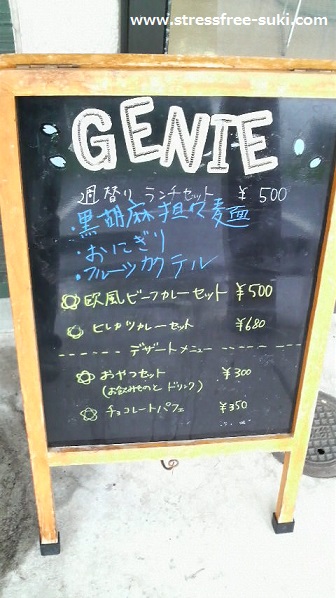 www.stressfree-suki.com
GENIE
週替りランチセット ¥500
・黒胡麻担々麺
・おにぎり
・フルーツカクテル
欧風ビーフカレーセット ¥500
ヒレカツカレーセット ¥680
デザートメニュー
おやつセット ¥300
(お飲みものと ドリンク)
チョコレートパフェ ¥350